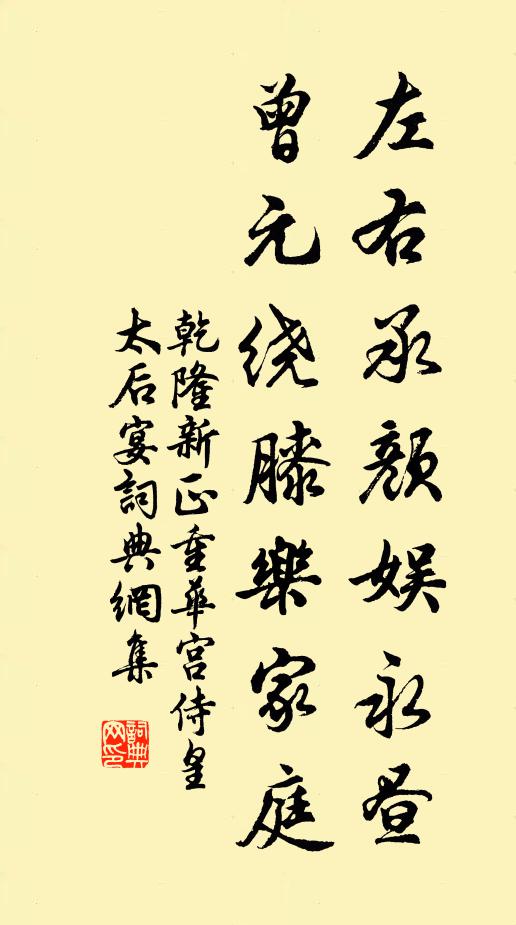 左右承颜娱永昼
曾元绕膝樂家庭
乾隆新正重华宫侍皇
太后宴詞典網集
詞典网印